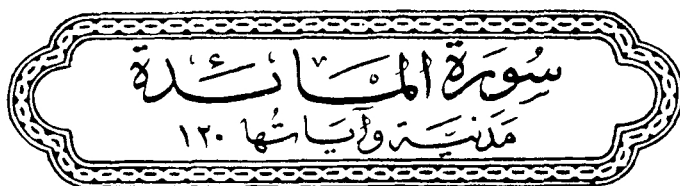 سُورَةُ المَائدة
مَدنيَّة وآيَاتُها ١٢٠